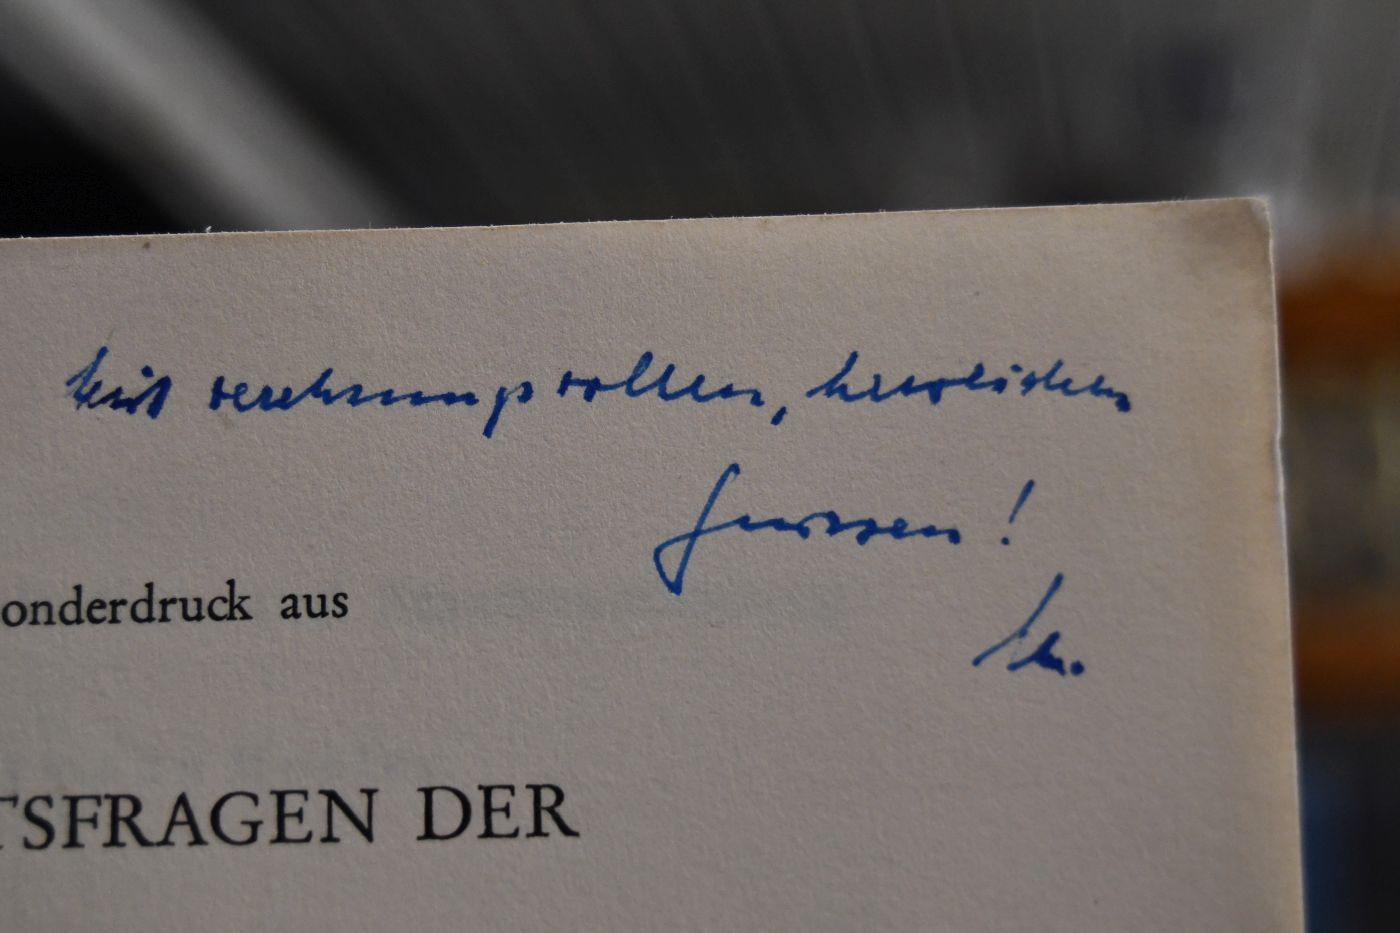 Mit verehrungsvollen, herzlichen
Grüssen!
onderdruck aus
TSFRAGEN DER